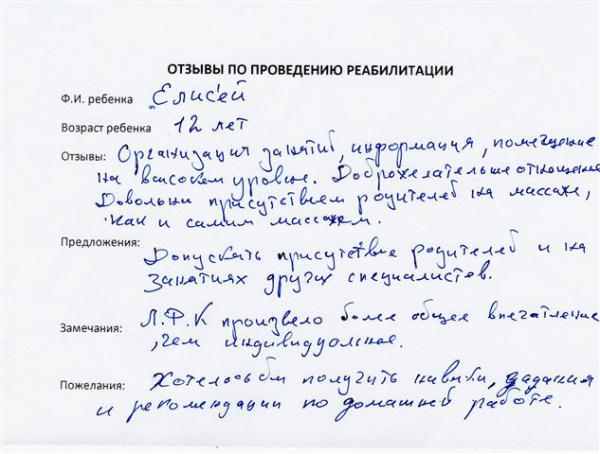 ОТЗЫВЫ ПО ПРОВЕДЕНИЮ РЕАБИЛИТАЦИИ
Ф.И. ребенка Елисей
Возраст ребенка 12 лет
Отзывы: Организация занятий, информация, помещение
на высоком уровне. Доброжелательные отношения.
Довольны присутствием родителей на массаже,
как и самим массажем.
Предложения: Допускать присутствие родителей и на
занятиях других специалистов.
Замечания: Л.Ф.К произвело более общее впечатление
,чем индивидуальное.
Пожелания: Хотелось бы получить навыки, задания
и рекомендации по домашней работе.